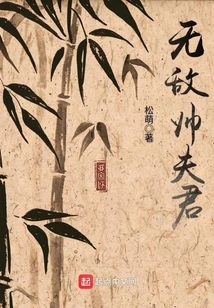 无敌帅夫君
松萌 著
起点中文网